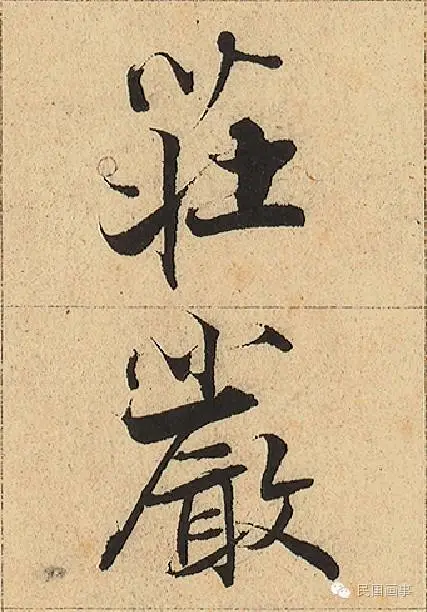 莊
嚴
民国画事